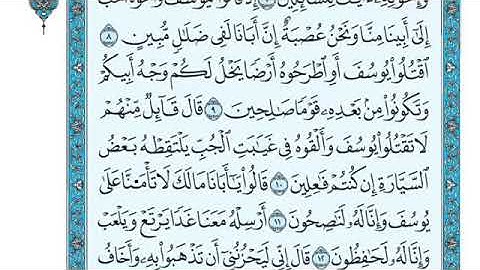 إِلَىٰٓ أَبِينَا مِنَّا وَنَحْنُ عُصْبَةٌ إِنَّ أَبَانَا لَفِى ضَلَٰلٍ مُّبِينٍ ٨
ٱقْتُلُوا۟ يُوسُفَ أَوِ ٱطْرَحُوهُ أَرْضًا يَخْلُ لَكُمْ وَجْهُ أَبِيكُمْ
وَتَكُونُوا۟ مِنۢ بَعْدِهِۦ قَوْمًا صَٰلِحِينَ ٩ قَالَ قَآئِلٌ مِّنْهُمْ
لَا تَقْتُلُوا۟ يُوسُفَ وَأَلْقُوهُ فِى غَيَٰبَتِ ٱلْجُبِّ يَلْتَقِطْهُ بَعْضُ
ٱلسَّيَّارَةِ إِن كُنتُمْ فَٰعِلِينَ ١٠ قَالُوا۟ يَٰٓأَبَانَا مَالَكَ لَا تَأْمَ۫نَّا عَلَىٰ
يُوسُفَ وَإِنَّا لَهُۥ لَنَٰصِحُونَ ١١ أَرْسِلْهُ مَعَنَا غَدًا يَرْتَعْ وَيَلْعَبْ
وَإِنَّا لَهُۥ لَحَٰفِظُونَ ١٢ قَالَ إِنِّى لَيَحْزُنُنِىٓ أَن تَذْهَبُوا۟ بِهِۦ وَأَخَافُ